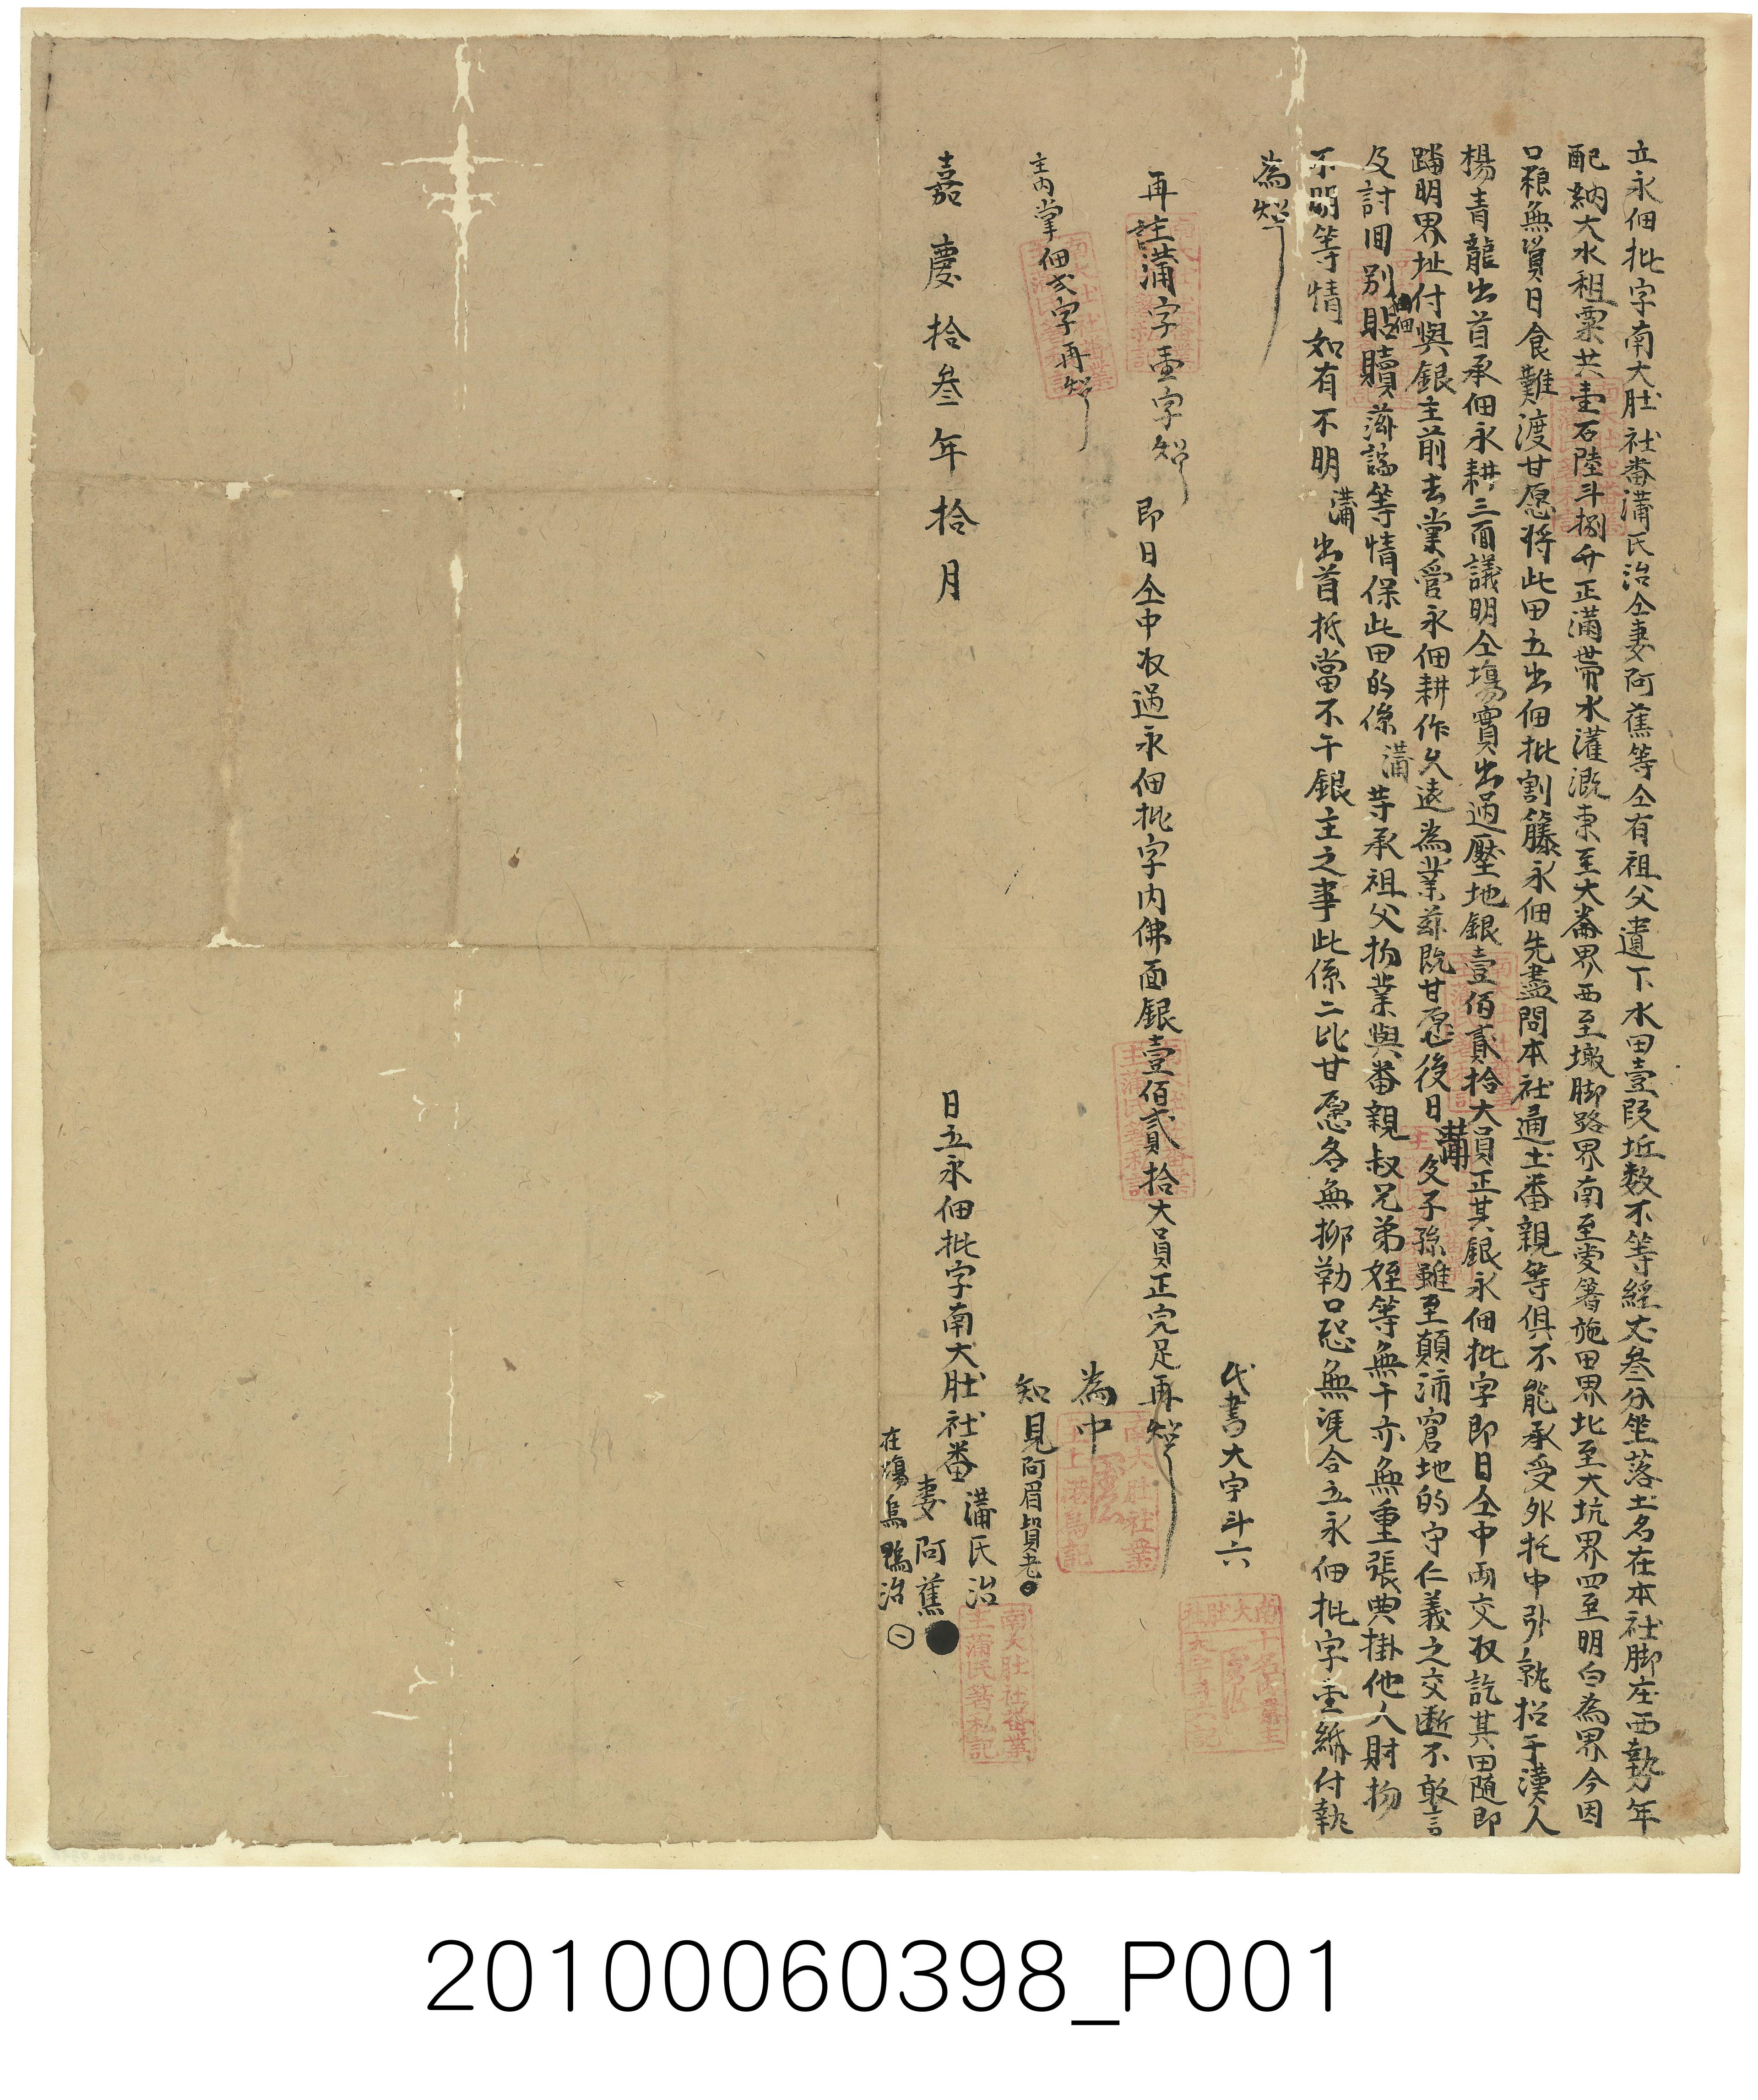 立永佃批字南大肚社番蒲氏治仝妻阿蕉等仝有祖父遺下水田壹段坵数不等經丈叁分坐落土名在本社脚庄西勢年
配納大水租粟共壹石陸斗捌升正滿帶水灌溉東至大崙界西至墩脚路界南至安箸施田界北至大坑界四至明白為界今因
口粮無資日食難渡甘愿将此田立出佃批割籐永佃先盡問本社通土番親等俱不能承受外托中引就招于漢人
楊青龍出首承佃永耕三面議明仝塲實出過壓地銀壹佰貳拾大員正其銀永佃批字即日仝中両交收訖其田随即
踏明界址付與銀主前去掌管永佃耕作久遠為業茲既甘愿後日蒲父子孫雖至顛沛窘地的守仁義之交断不敢言
及討回別佃貼贖滋謡等情保此田的係蒲等承祖父物業與番親叔兄弟姪等無干亦無重張典掛他人財物
不明等情如有不明蒲出首抵當不干銀主之事此係二比甘愿各無抑勒口恐無凭合立永佃批字壹紙付執
為炤
代書大宇斗六
再註蒲字壹字炤 即日仝中收過永佃批字内佛面銀壹佰貳拾大員正完足再炤
為中
主内掌佃弍字再炤
知見阿眉貿老
嘉慶拾叁年拾月 日立永佃批字南大肚社番蒲氏治
妻阿蕉
在塲烏鴉治
南大肚社番業主蒲氏箸私記
20100060398_P001